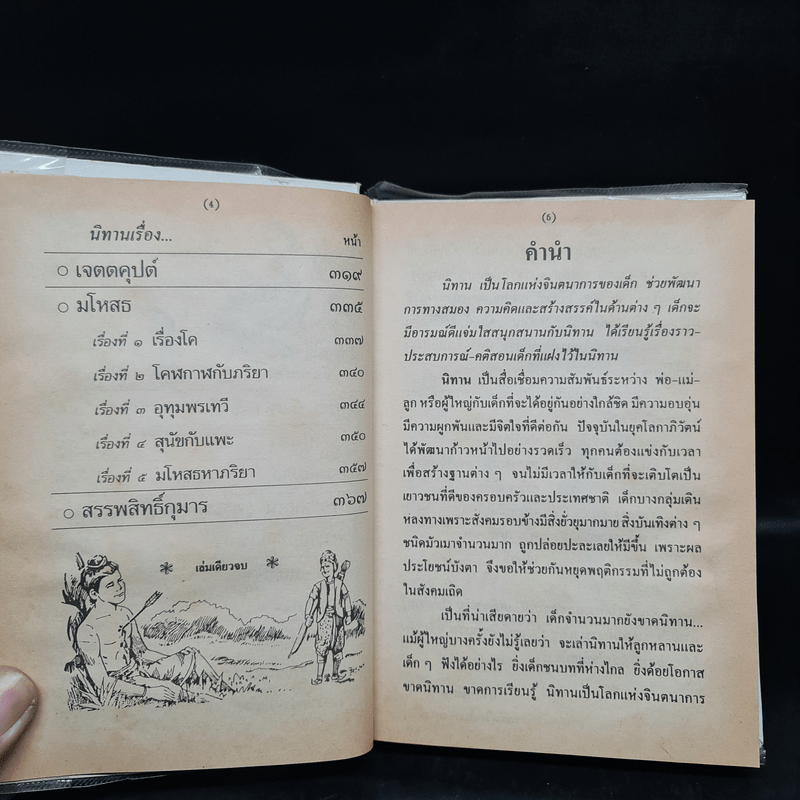 (4)
นิทานเรื่อง... หน้า
○ เจตตคุปต์ ๓๑๙
○ มโหสธ ๓๓๕
เรื่องที่ ๑ เรื่องโค ๓๓๗
เรื่องที่ ๒ โคฬกาฬกับภริยา ๓๔๐
เรื่องที่ ๓ อุทุมพรเทวี ๓๔๔
เรื่องที่ ๔ สุนัขกับแพะ ๓๕๐
เรื่องที่ ๕ มโหสธหาภริยา ๓๕๗
○ สรรพสิทธิ์กุมาร ๓๖๗
เล่มเดียวจบ
(5)
คำนำ
นิทาน เป็นโลกแห่งจินตนาการของเด็ก ช่วยพัฒนา
การทางสมอง ความคิดและสร้างสรรค์ในด้านต่าง ๆ เด็กจะ
มีอารมณ์ดีแจ่มใสสนุกสนานกับนิทาน ได้เรียนรู้เรื่องราว-
ประสบการณ์-คติสอนเด็กที่แฝงไว้ในนิทาน
นิทาน เป็นสื่อเชื่อมความสัมพันธ์ระหว่าง พ่อ-แม่-
ลูก หรือผู้ใหญ่กับเด็กที่จะได้อยู่กันอย่างใกล้ชิด มีความอบอุ่น
มีความผูกพันและมีจิตใจที่ดีต่อกัน ปัจจุบันในยุคโลกาภิวัตน์
ได้พัฒนาก้าวหน้าไปอย่างรวดเร็ว ทุกคนต้องแข่งกับเวลา
เพื่อสร้างฐานต่าง ๆ จนไม่มีเวลาให้กับเด็กที่จะเติบโตเป็น
เยาวชนที่ดีของครอบครัวและประเทศชาติ เด็กบางกลุ่มเดิน
หลงทางเพราะสังคมรอบข้างมีสิ่งยั่วยุมากมาย สิ่งบันเทิงต่าง ๆ
ชนิดมัวเมาจำนวนมาก ถูกปล่อยปะละเลยให้มีขึ้น เพราะผล
ประโยชน์บังตา จึงขอให้ช่วยกันหยุดพฤติกรรมที่ไม่ถูกต้อง
ในสังคมเถิด
เป็นที่น่าเสียดายว่า เด็กจำนวนมากยังขาดนิทาน...
แม้ผู้ใหญ่บางครั้งยังไม่รู้เลยว่า จะเล่านิทานให้ลูกหลานและ
เด็ก ๆ ฟังได้อย่างไร ยิ่งเด็กชนบทที่ห่างไกล ยิ่งด้อยโอกาส
ขาดนิทาน ขาดการเรียนรู้ นิทานเป็นโลกแห่งจินตนาการ